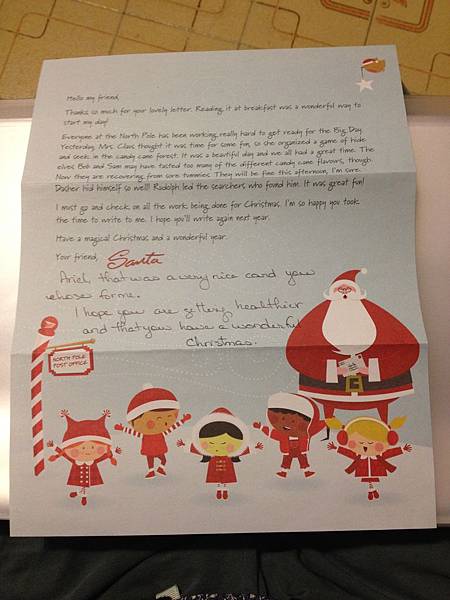 Hello my friend,
Thanks so much for your lovely letter. Reading it at breakfast was a wonderful way to
start my day!
Everyone at the North Pole has been working really hard to get ready for the Big Day.
Yesterday, Mrs. Claus thought it was time for some fun, so she organized a game of hide
and seek in the candy cane forest. It was a beautiful day and we all had a great time. The
elves Bob and Sam may have tasted too many of the different candy cane flavours, though.
Now they are recovering from sore tummies. They will be fine this afternoon, I'm sure.
Dasher hid himself so well! Rudolph led the searchers who found him. It was great fun!
I must go and check on all the work being done for Christmas. I'm so happy you took
the time to write to me. I hope you'll write again next year.
Have a magical Christmas and a wonderful year.
Your friend, Santa
Ariel, that was a very nice card you
chose for me.
I hope you are getting healthier
and that you have a wonderful
Christmas.
NORTH POLE
POST OFFICE